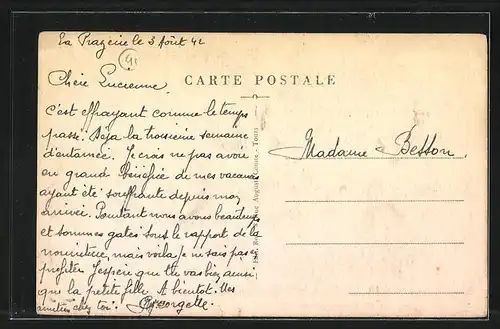 La le 3 Août 42
41
Chère Lucienne
CARTE POSTALE
c'est effrayant comme le temps
passe. Déja la troisieme semaine
d'entamée. Je crois ne pas avoir
eu grand bénéfice de mes vacances
ayant été souffrante depuis mon
arrivée. Pourtant nous avons beau temps
et sommes gatés sous le rapport de la
nourriture, mais voila je ne sais pas en
profiter. J'espère que tu vas bien ainsi
que la petite fille. A bientot. Mes
amitiés chez toi. Georgette.
Madame Besson.
Tours